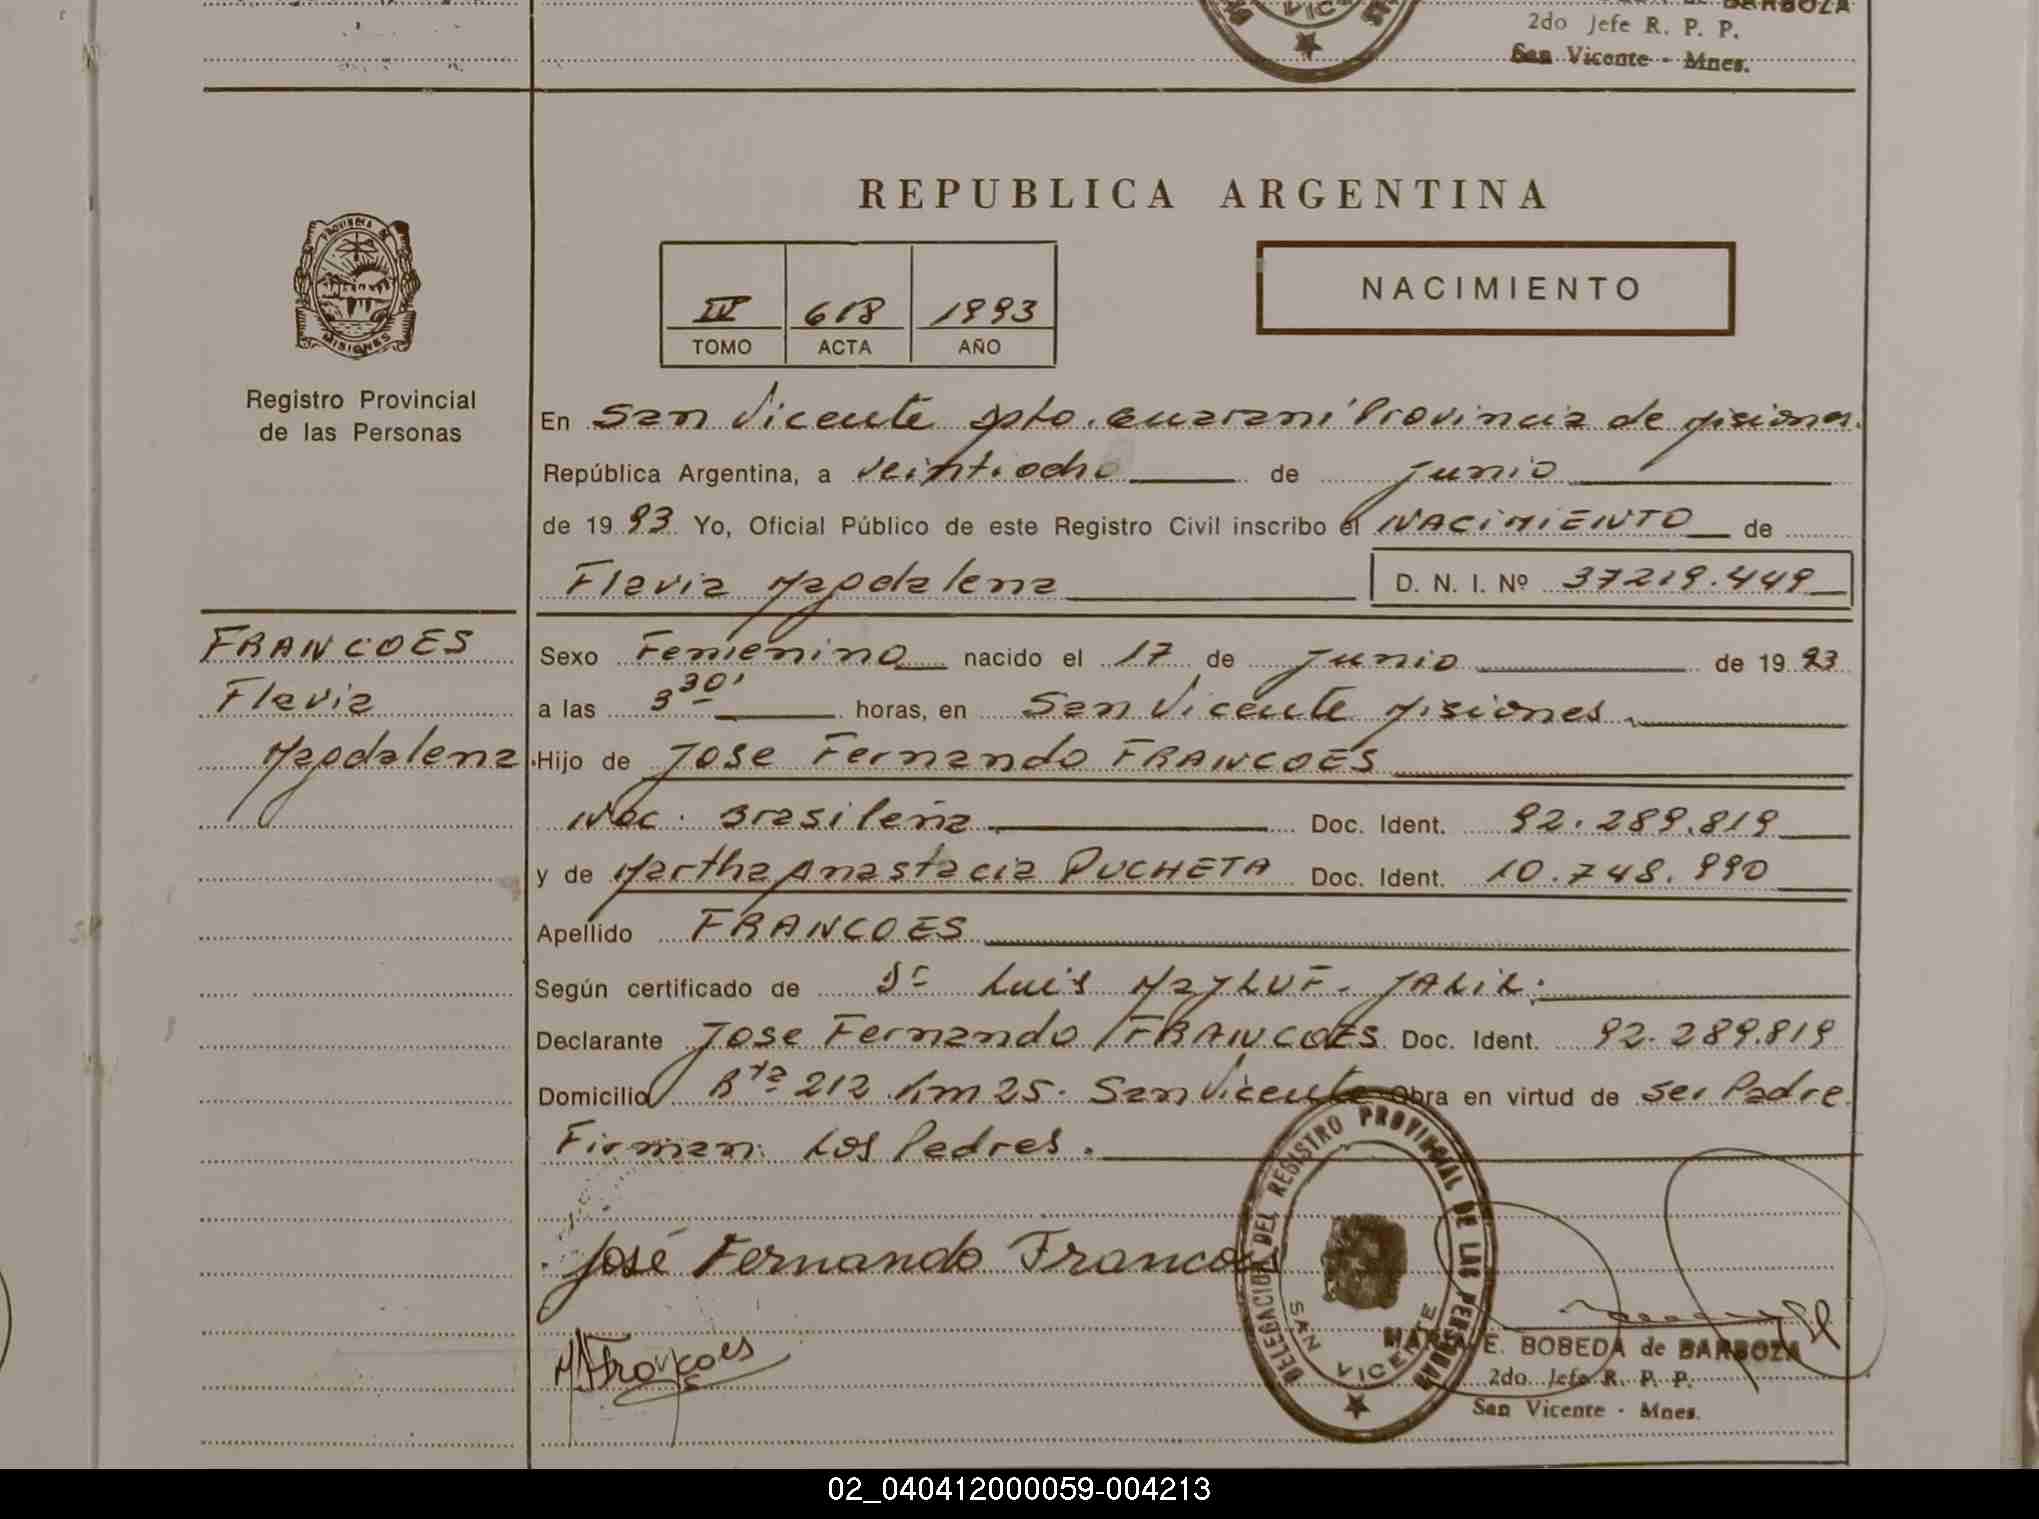 BARBOZA
2do Jefe R. P. P.
San Vicente - Mnes.
VICE
REPUBLICA ARGENTINA
PROVINCIA DE
MISIONES
Registro Provincial
de las Personas
IV 618 1993
TOMO ACTA AÑO
NACIMIENTO
En San Vicente Dpto. Guarani Provincia de Misiones.
República Argentina, a veintiocho de junio
de 1993 Yo, Oficial Público de este Registro Civil inscribo el NACIMIENTO de
Flavia Magdalena D. N. I. Nº 37219.449
FRANCOES
Flavia
Magdalena
Sexo Femenino nacido el 17 de Junio de 1993
a las 3 30' horas, en San Vicente Misiones
Hijo de Jose Fernando FRANCOES
Nac. Brasileña Doc. Ident. 92.289.819
y de Martha Anastacia PUCHETA Doc. Ident. 10.748.990
Apellido FRANCOES
Según certificado de Dr Luis MAYLUF - JALIL.
Declarante Jose Fernando FRANCOES Doc. Ident. 92.289.819
Domicilio Rta 212 Km 25. San Vicente Obra en virtud de ser Padre.
Firman: Los Padres.
José Fernando Francoes
M Francoes
DELEGACION DEL REGISTRO PROVINCIAL DE LAS PERSONAS
SAN VICENTE
MARIA E. BOBEDA de BARBOZA
2do. Jefe R. P. P.
San Vicente - Mnes.
02_040412000059-004213